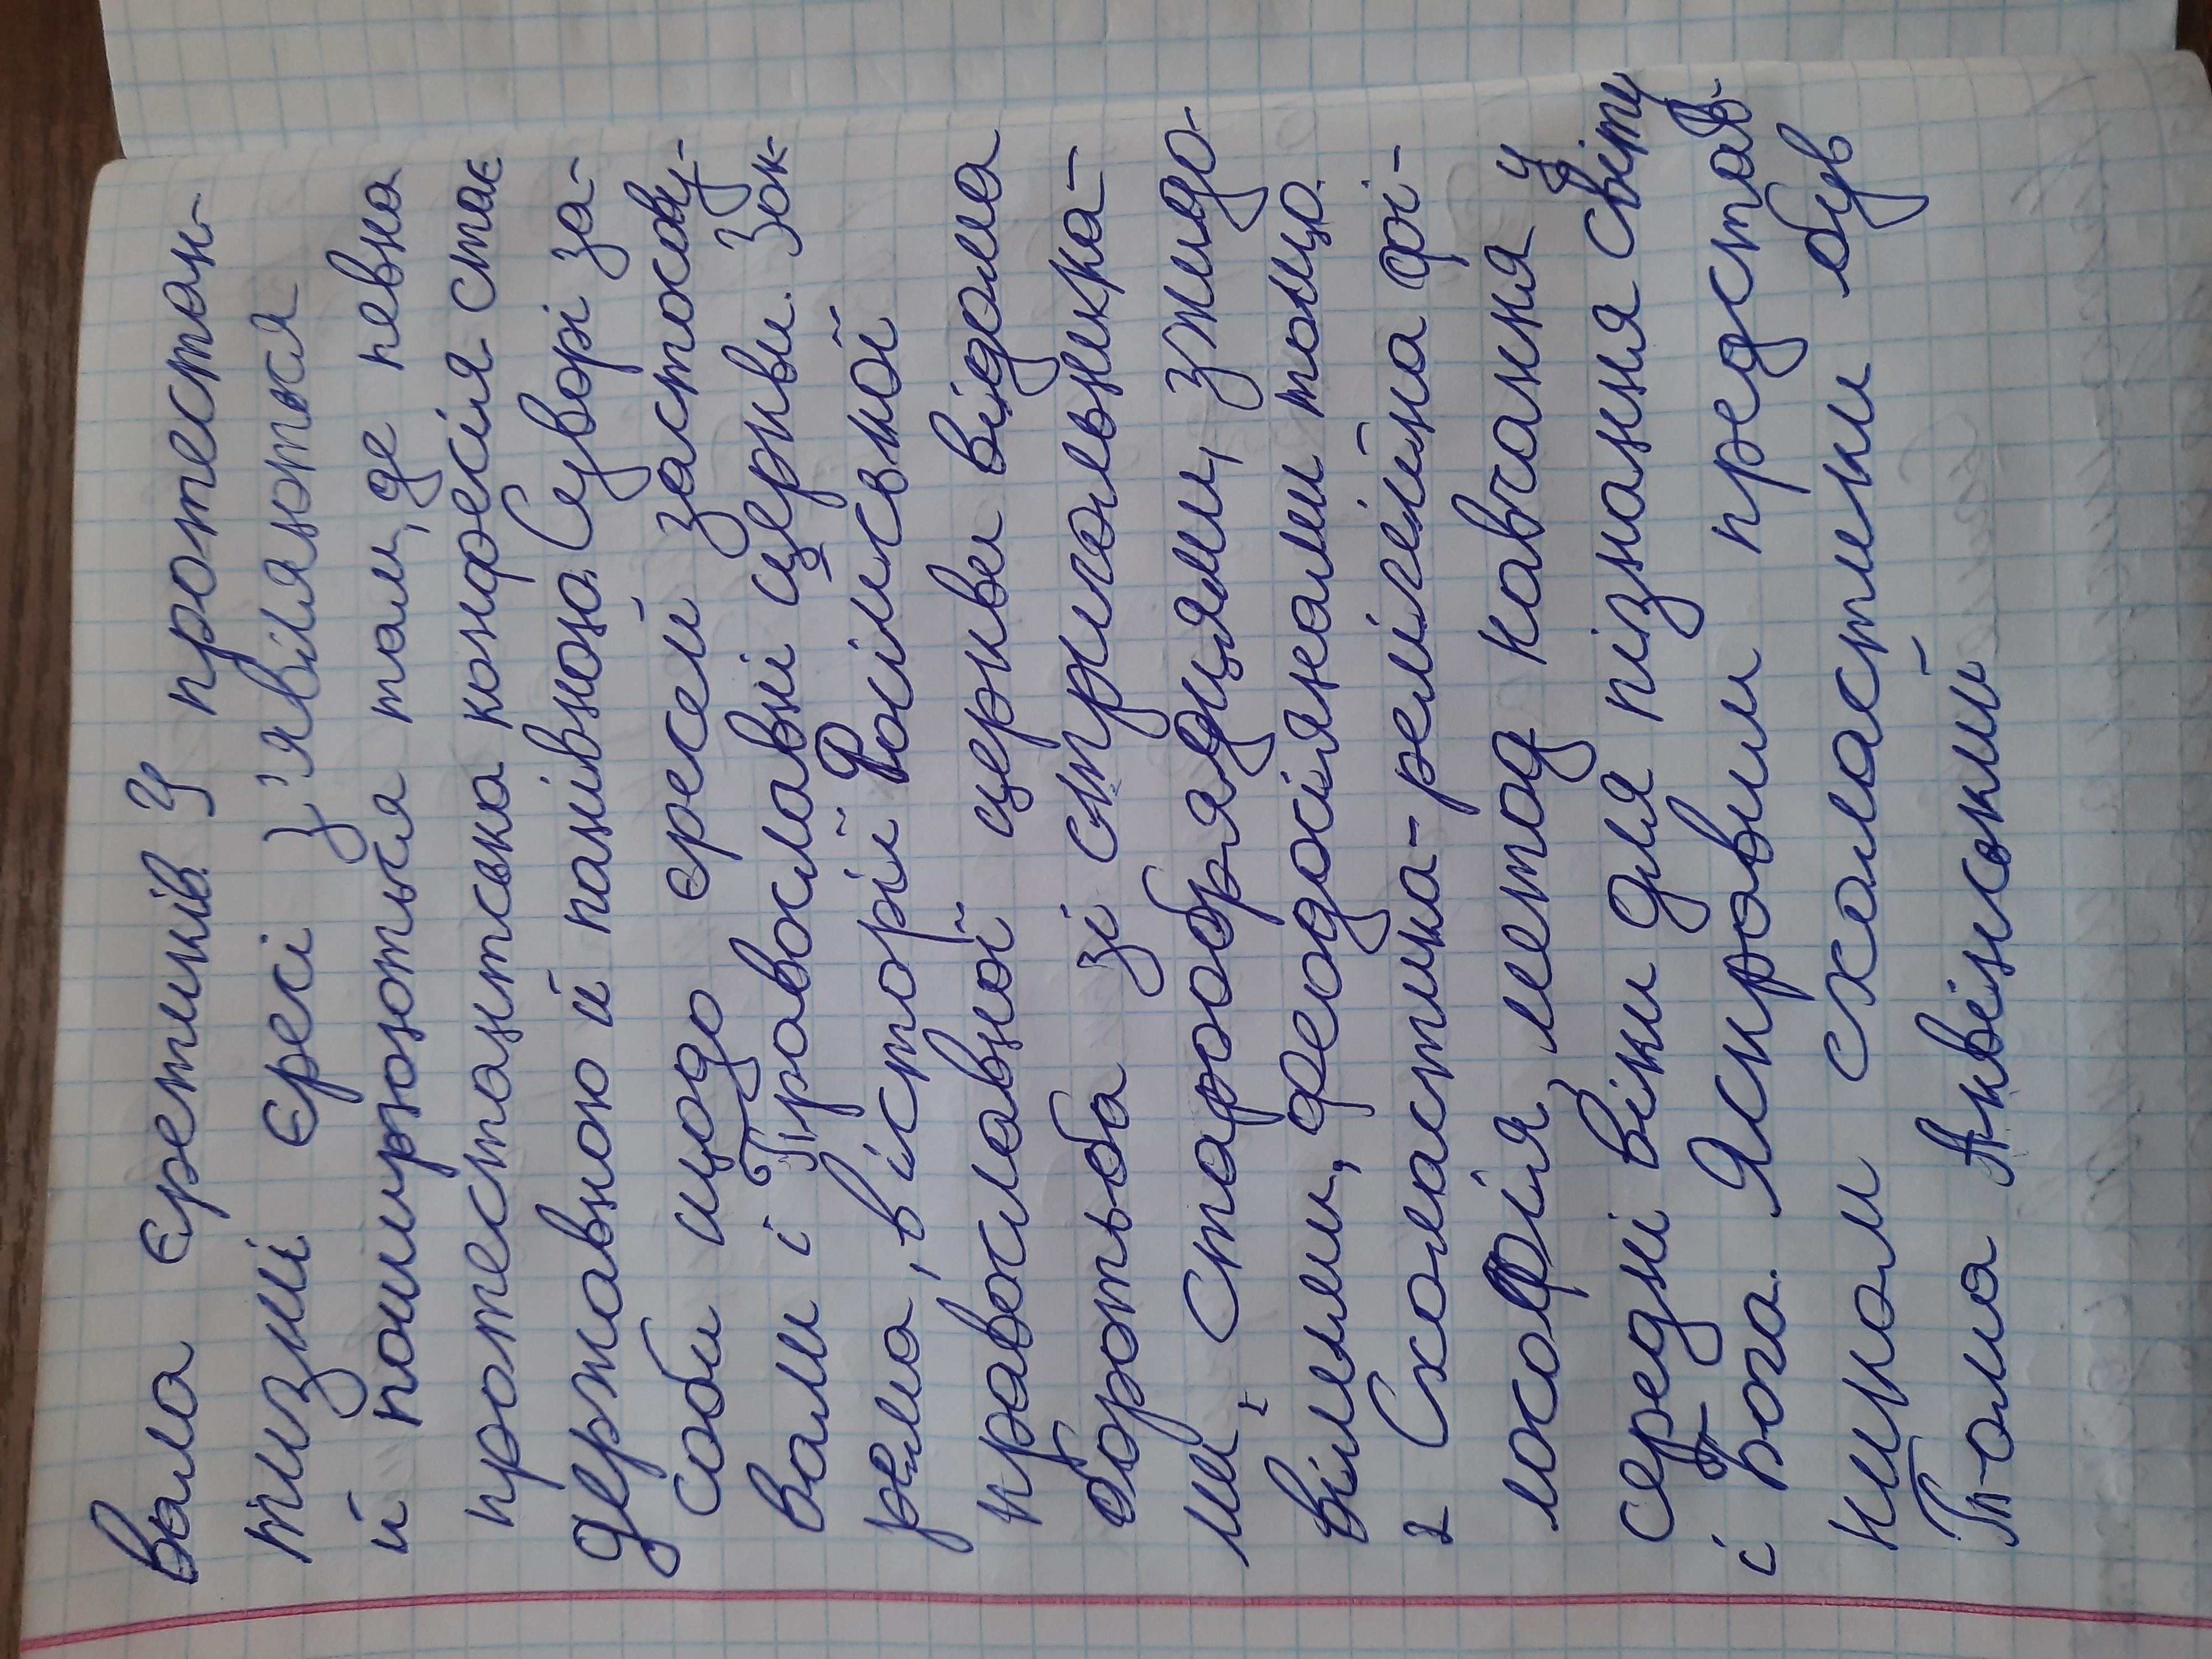 вала єретиків. У протестан-
тизмі єресі з'являються
й поширюються там, де певна
протестантська конфесія стає
державною й панівною. Суворі за-
соби щодо єресей застосову-
вали і Православні церкви. Зок-
рема, в історії Російської
православної церкви відома
боротьба зі стригольника-
ми, старообрядцями, жидо-
вілими, феодосіянами тощо.
2 Схоластика - релігійна фі-
лософія, метод навчання у
середні віки для пізнання світу
і Бога. Яскравим представ-
ником схоластики був
Тома Аквінський